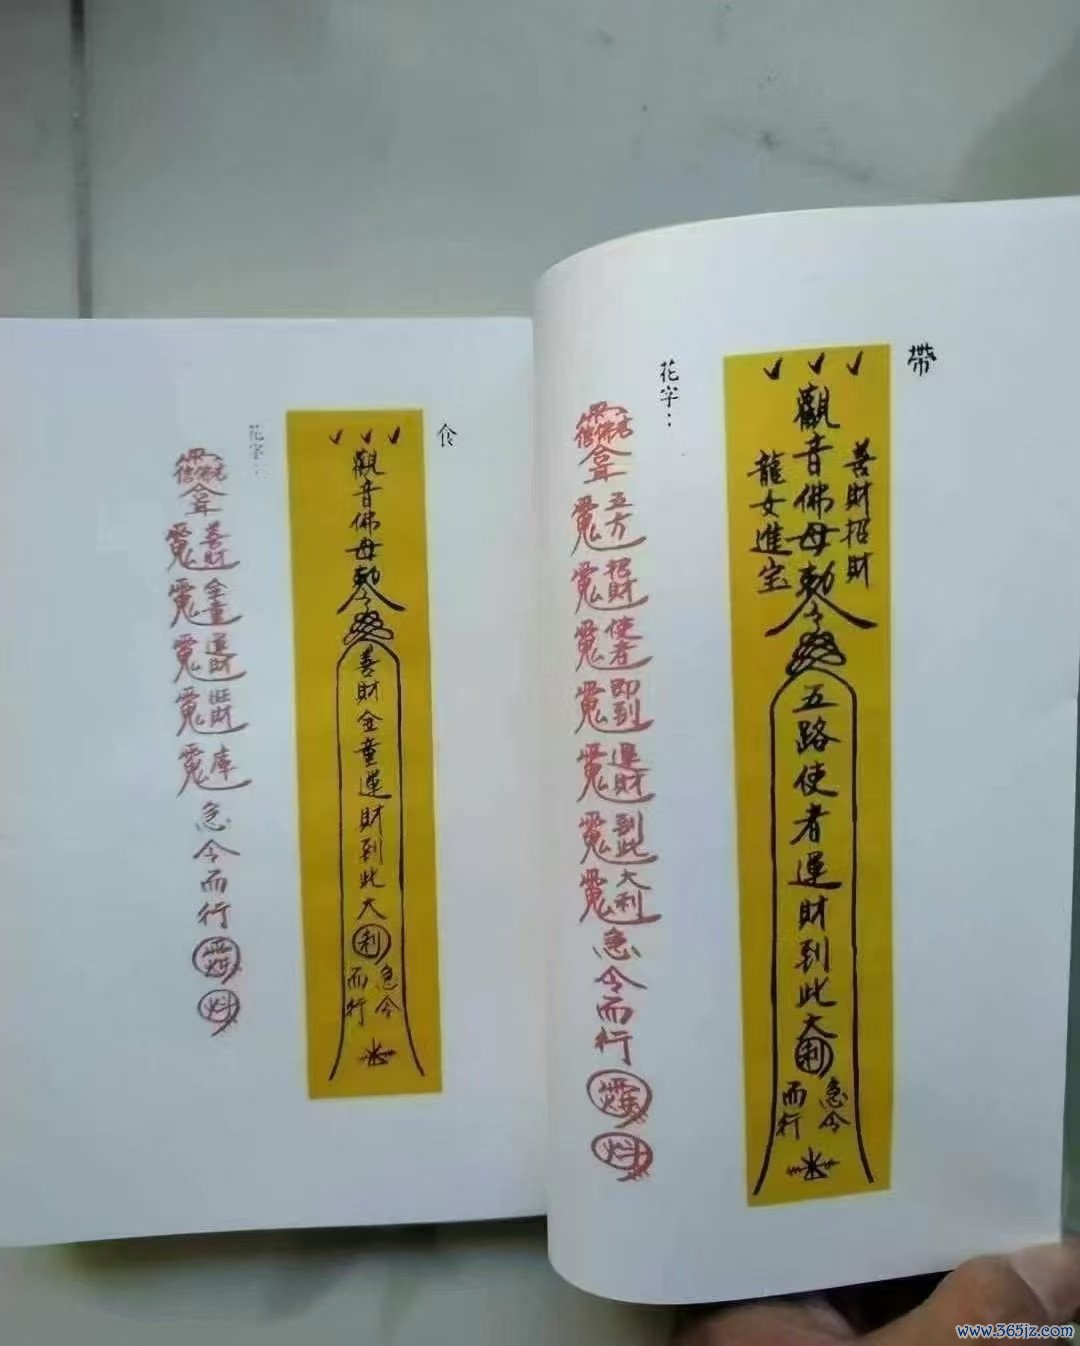 帶
善財招財
觀音佛母勅令
龍女進宝
五路使者運財到此大利
急令
而行
花字：
五方
招財
使者
即到
運財
到此
大利
急令而行
食
觀音佛母勅令
善財金童運財到此大利
急令
而行
花字：
善財
金童
運財
旺財
庫
急令而行
www.365jz.com